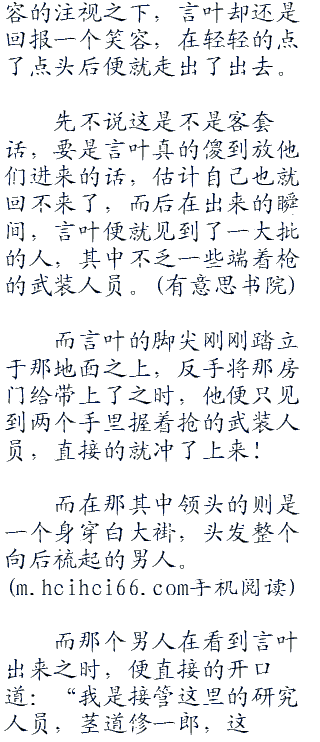 容的注视之下，言叶却还是
回报一个笑容，在轻轻的点
了点头后便就走出了出去。
先不说这是不是客套
话，要是言叶真的傻到放他
们进来的话，估计自己也就
回不来了，而后在出来的瞬
间，言叶便就见到了一大批
的人，其中不乏一些端着枪
的武装人员。(有意思书院)
而言叶的脚尖刚刚踏立
于那地面之上，反手将那房
门给带上了之时，他便只见
到两个手里握着抢的武装人
员，直接的就冲了上来！
而在那其中领头的则是
一个身穿白大褂，头发整个
向后梳起的男人。
(m.hcihci66.com手机阅读)
而那个男人在看到言叶
出来之时，便直接的开口
道：“我是接管这里的研究
人员，茎道修一郎，这